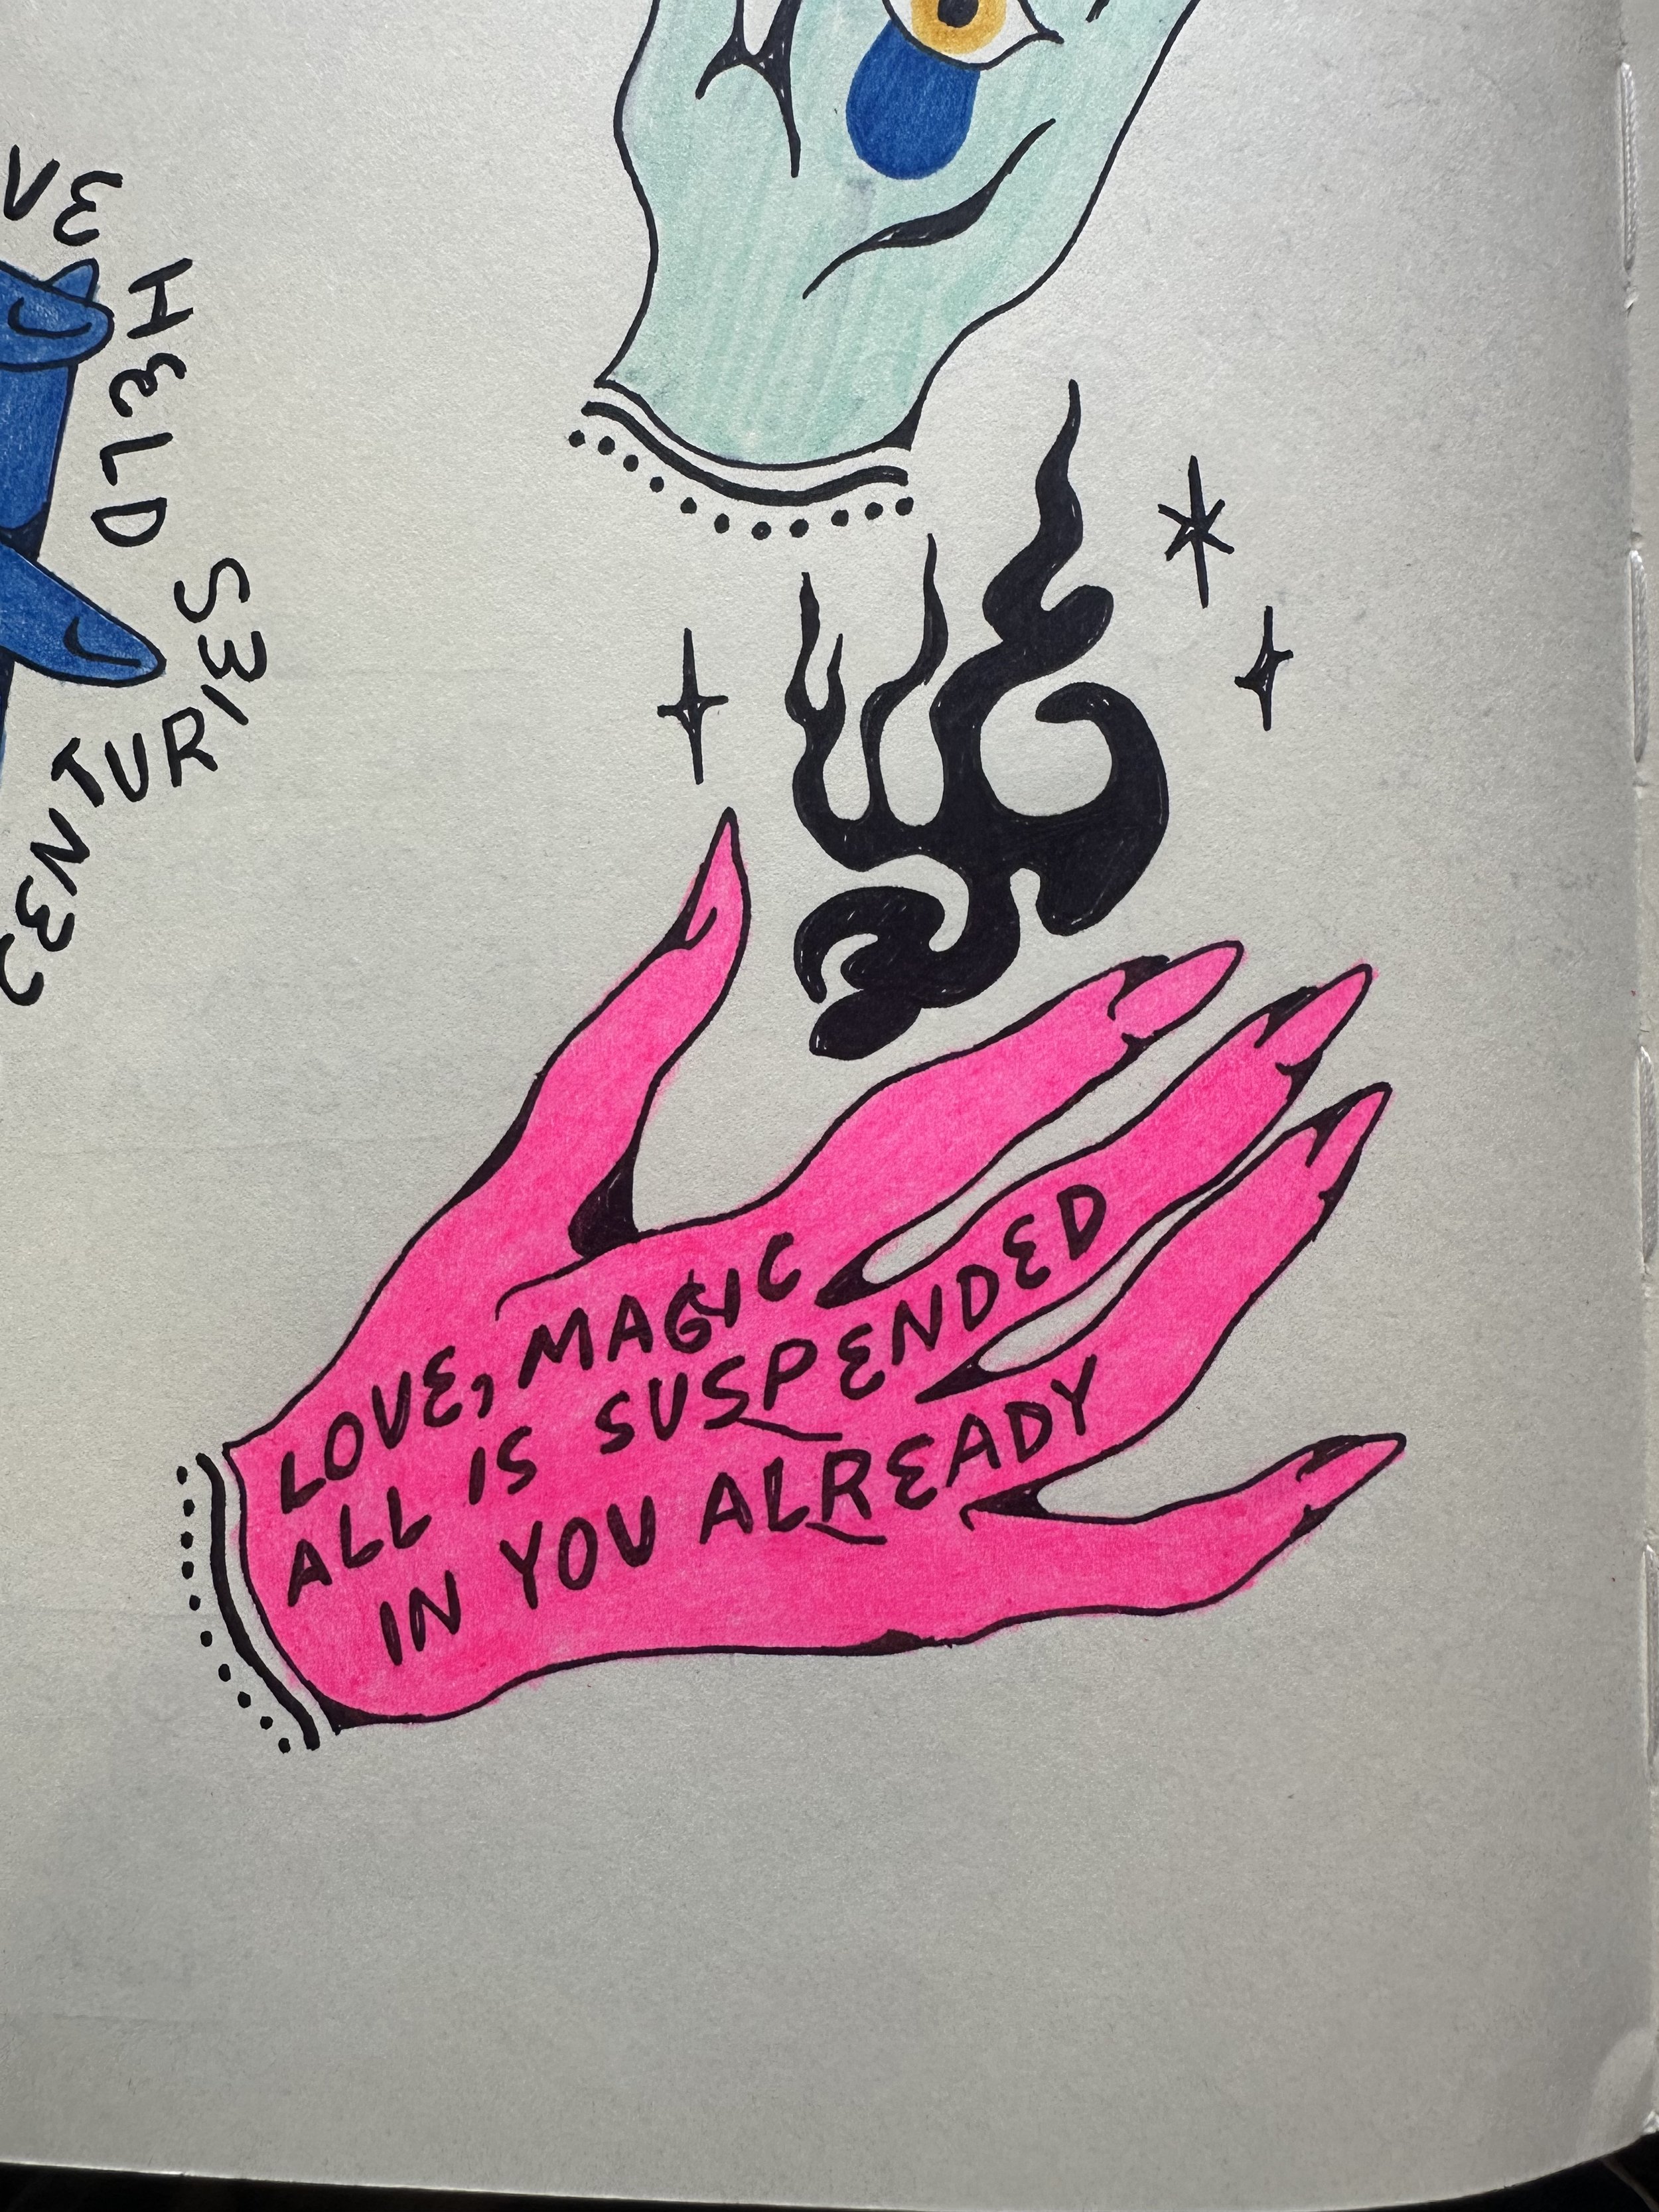 VE
HELD
CENTURIES
LOVE, MAGIC
ALL IS SUSPENDED
IN YOU ALREADY